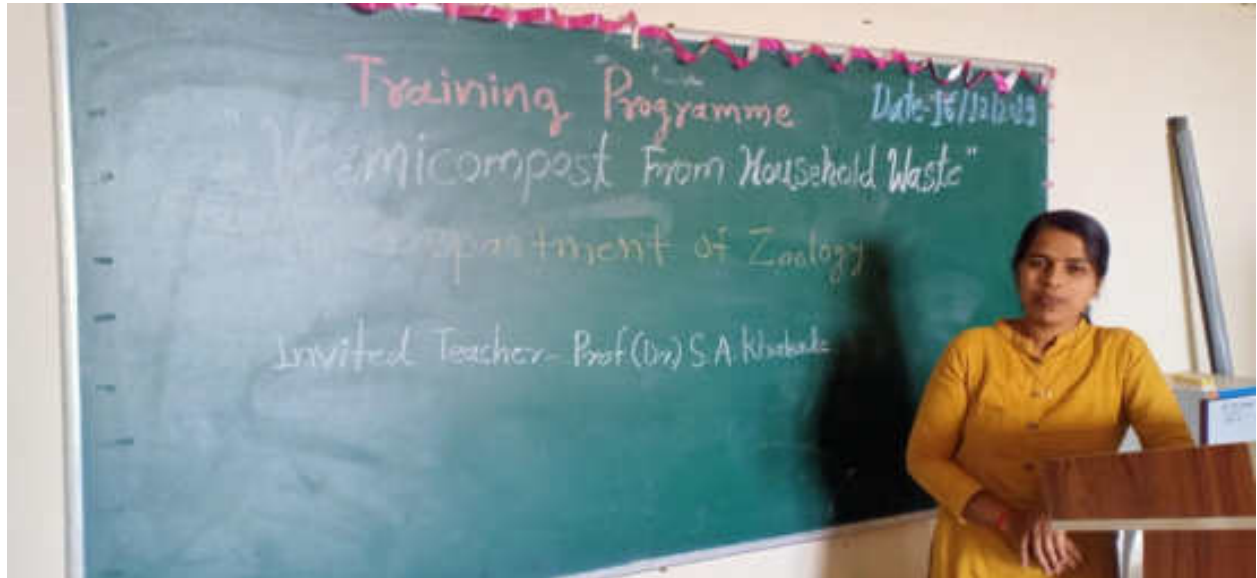 Training Programme
Date-16/12/2019
"Vermicompost From Household Waste"
Department of Zoology
Invited Teacher- Prof.(Dr.) S.A.